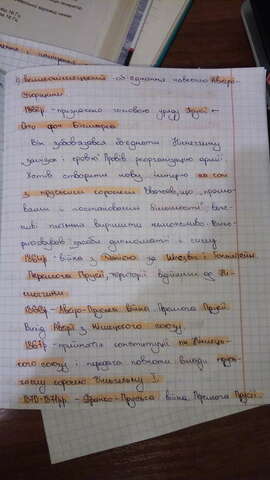 об'єднання навколо Австро-
Угорщини
1862р - призначено головою уряду Прусії ←
Отто фон Бісмарка
Він зобов'язався об'єднати Німеччину
залізом і кров'ю. Провів реорганізацію армії.
Хотів створити нову імперію на чолі
з пруським королем. Вважав, що „промо-
вами і постановами більшості" важ-
ливі питання вирішити неможливо. Вико-
ристовував засоби дипломатії і силу.
1864р - війна з Данією за Шлезвіг і Гольштейн.
Перемога Прусії, території відійшли до Ні-
меччини
1866р - Австро-Пруська війна. Перемога Прусії.
Вихід Австрії з Німецького союзу.
1867р - прийняття конституції Німець-
кого союзу і передача повноти влади прусь-
кому королю Вільгельму I.
1870-1871рр. - Франко-Пруська війна. Перемога Прусії.